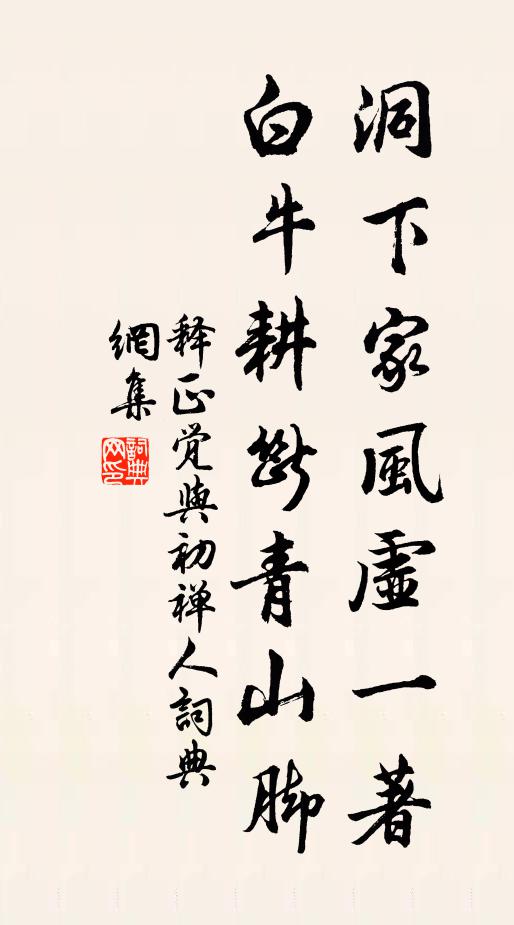 洞下家風虛一著
白牛耕斷青山脚
释正觉與初禅人詞典
網集
詞典網印